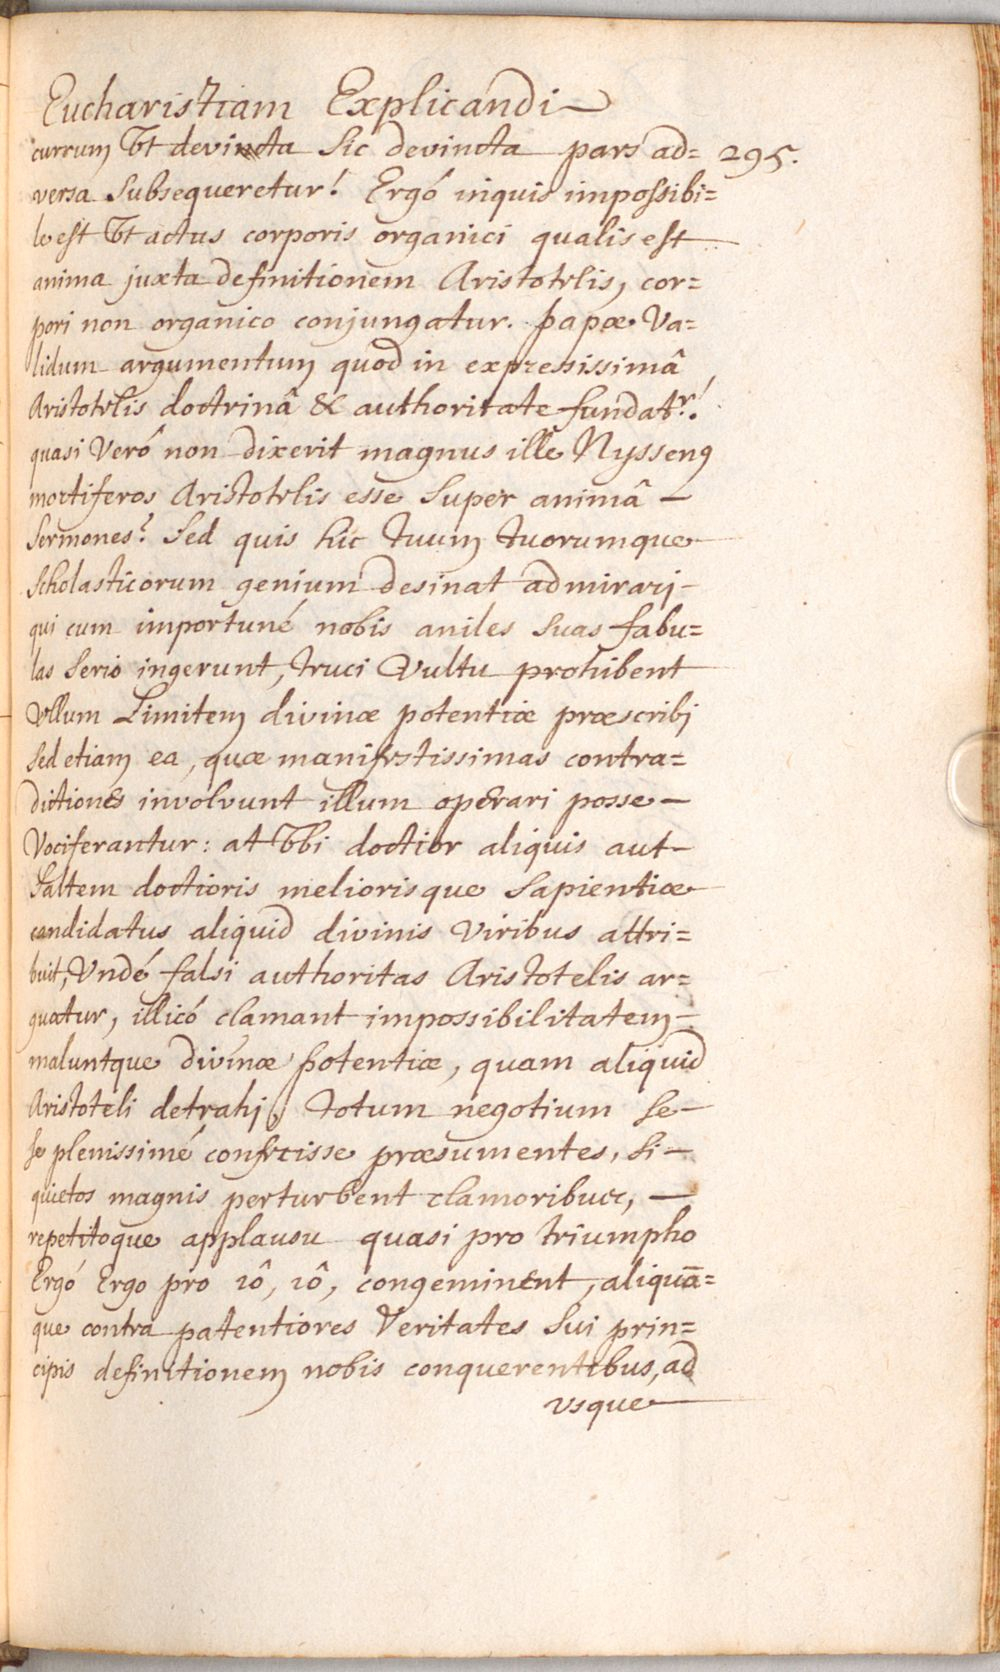 Eucharistiam Explicandi
currum Vt devincta Sic devincta pars ad= 295.
versa Subsequeretur! Ergó inquis impossibi=
le est Vt actus corporis organici qualis est
anima juxta definitionem Aristotelis, cor=
pori non organico conjungatur. papæ Va=
lidum argumentum quod in expressissimâ
Aristotelis doctrinâ & authoritate fundatr!
quasi Veró non dixerit magnus ille Nyssenꝰ
mortiferos Aristotelis esse Super animâ —
Sermones? Sed quis hic tuum tuorumque
Scholasticorum genium desinat admirari
qui cum importuné nobis aniles Suas fabu=
las Serio ingerunt, truci Vultu prohibent
Vllum Limitem divinæ potentiæ præscribj
Sed etiam ea, quæ manifestissimas contra=
dictiones involvunt illum operari posse —
Vociferantur: at Vbi doctior aliquis aut
Saltem doctioris meliorisque Sapientiæ
candidatus aliquid divinis Viribus attri=
buit, Vndé falsi authoritas Aristotelis ar=
guatur, illicó clamant impossibilitatem
maluntque divinæ potentiæ, quam aliquid
Aristoteli detrahj, totum negotium Se
se plenissimé confecisse præsumentes, Si
quietos magnis perturbent clamoribus, —
repetitoque applausu quasi pro triumpho
Ergó Ergo pro iô, iô, congeminent, aliquā=
que contra patentiores Veritates Sui prin=
cipis definitionem nobis conquerentibus, ad
vsque